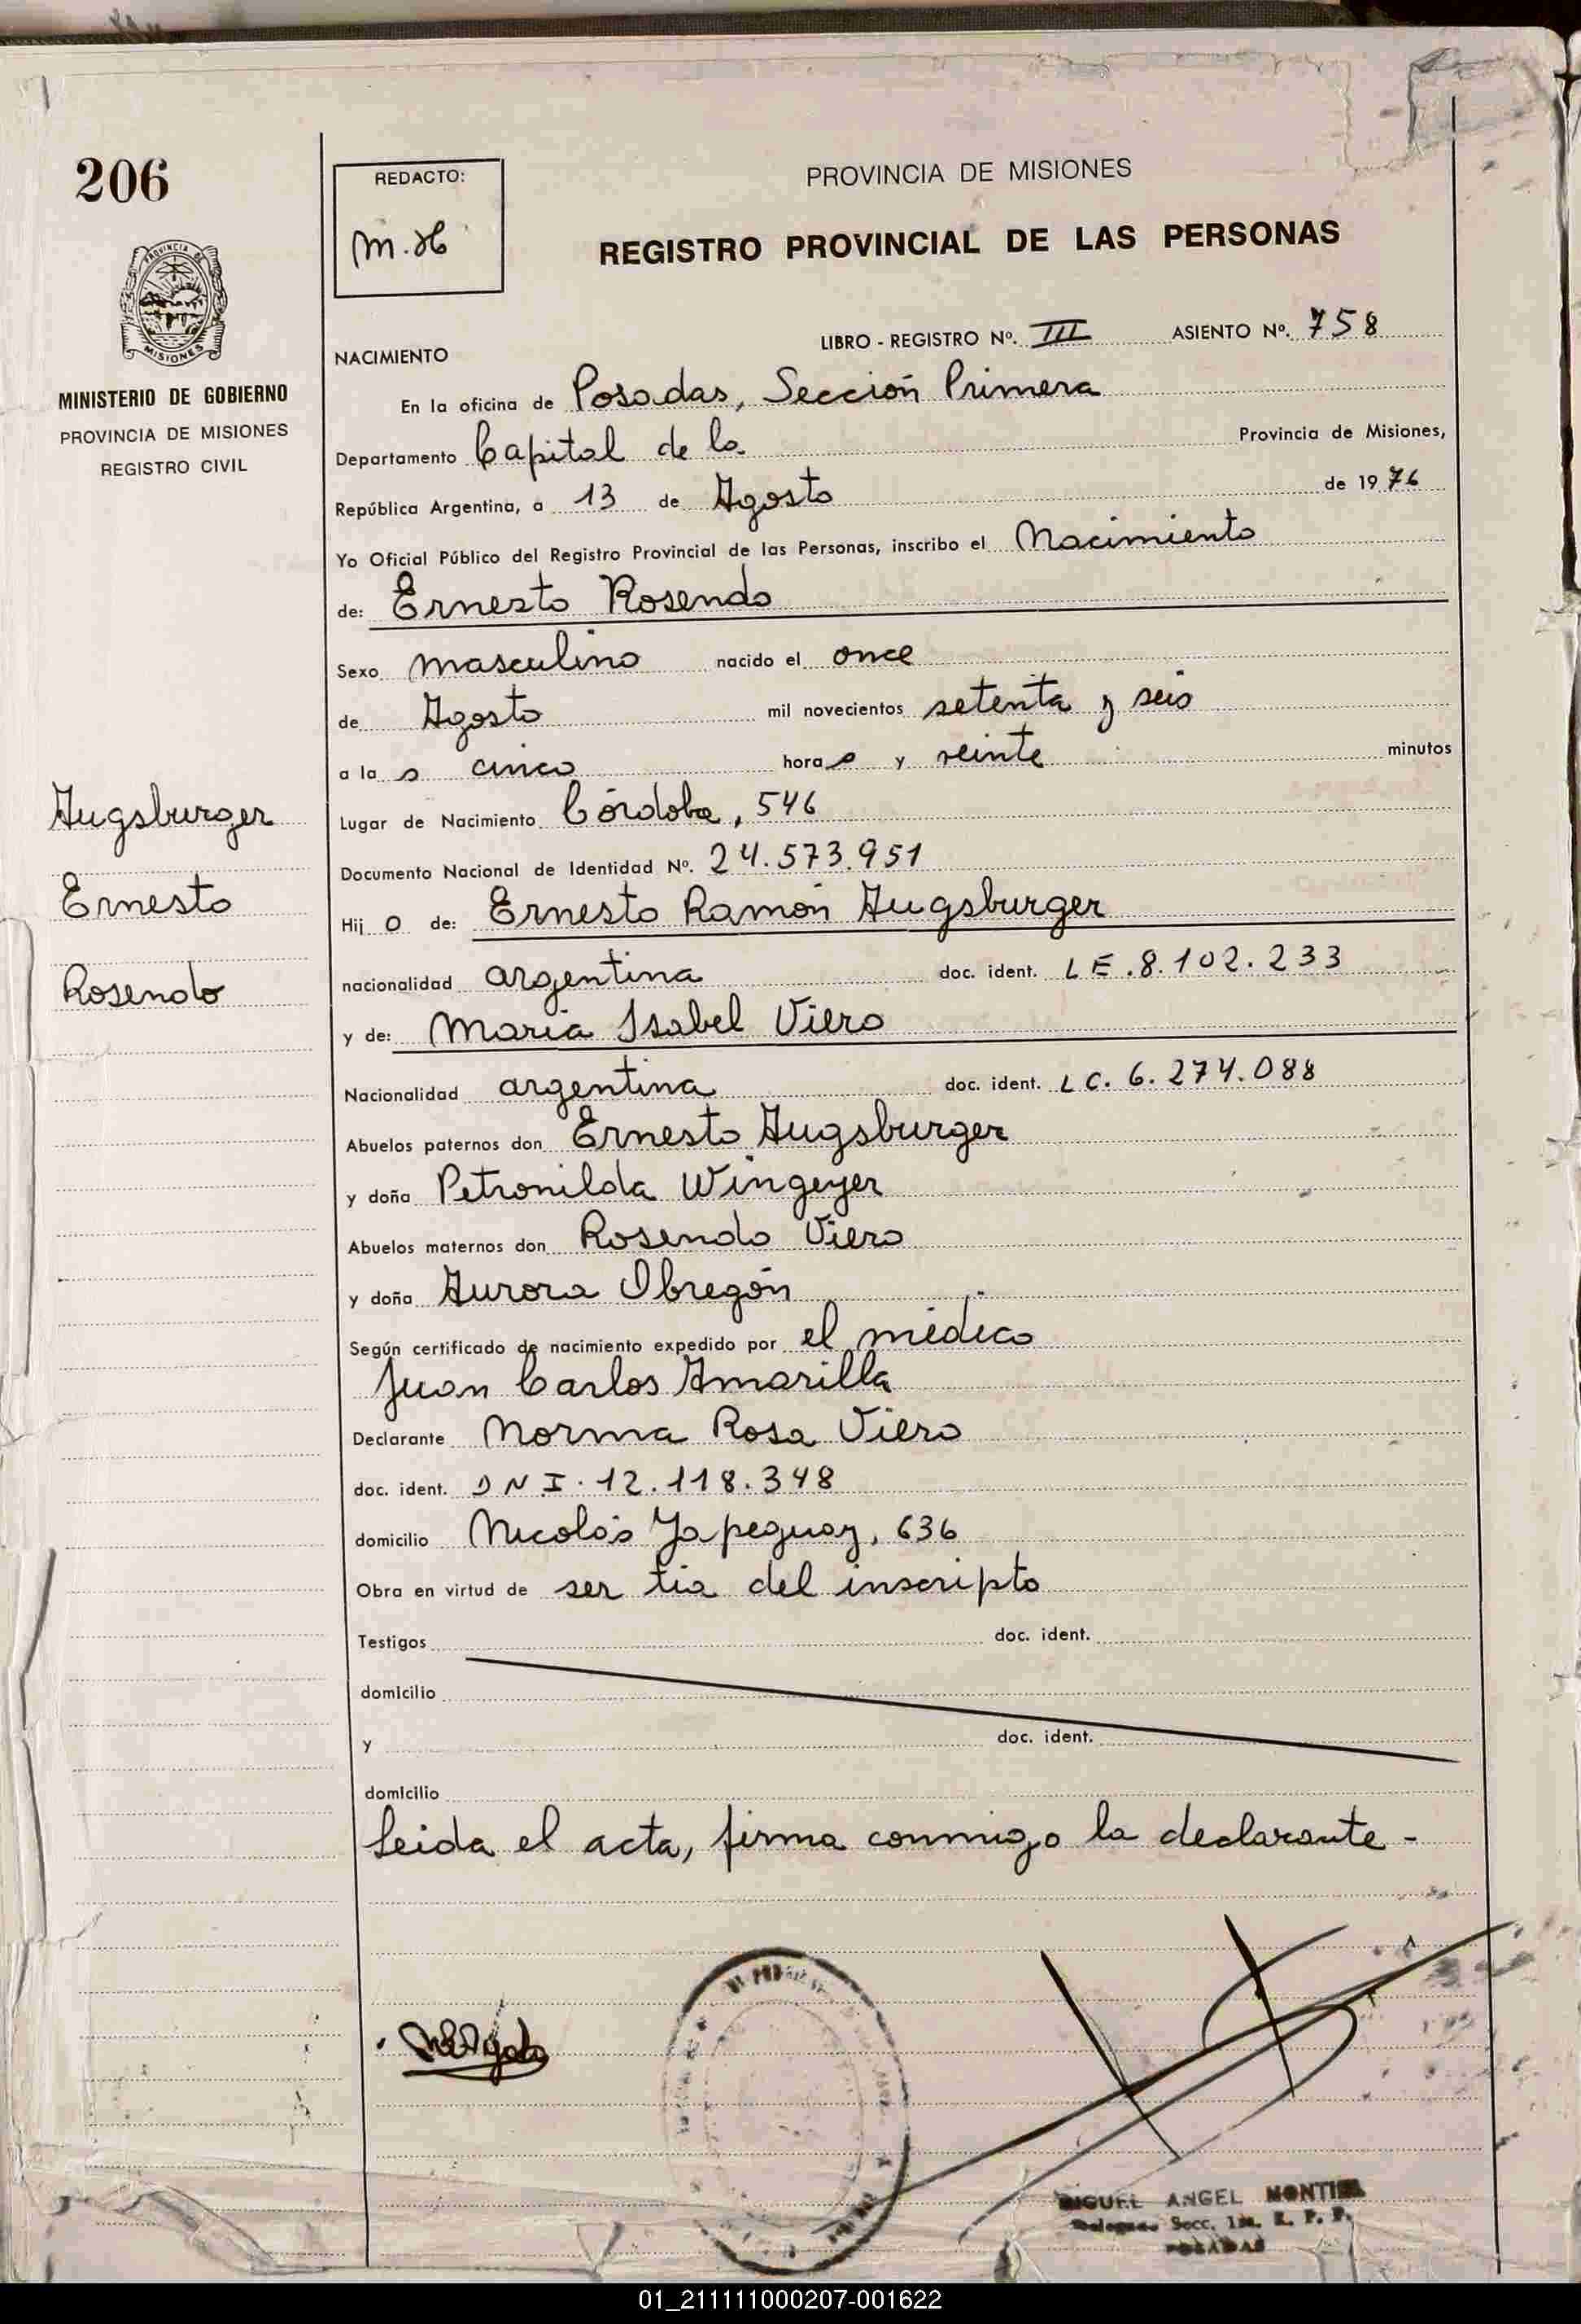 206
REDACTO:
M.H
PROVINCIA DE MISIONES
REGISTRO PROVINCIAL DE LAS PERSONAS
PROVINCIA DE
MISIONES
MINISTERIO DE GOBIERNO
PROVINCIA DE MISIONES
REGISTRO CIVIL
LIBRO - REGISTRO Nº. III ASIENTO Nº. 758
NACIMIENTO
En la oficina de Posadas, Sección Primera
Departamento Capital de la Provincia de Misiones,
República Argentina, a 13 de Agosto de 1976
Yo Oficial Público del Registro Provincial de las Personas, inscribo el Nacimiento
de: Ernesto Rosendo
Sexo masculino nacido el once
de Agosto mil novecientos setenta y seis
a la s cinco hora s y veinte minutos
Lugar de Nacimiento Córdoba, 546
Documento Nacional de Identidad Nº. 24.573.951
Hij o de: Ernesto Ramón Augsburger
nacionalidad argentina doc. ident. LE.8.102.233
y de: María Isabel Viero
Nacionalidad argentina doc. ident. LC. 6.274.088
Abuelos paternos don Ernesto Augsburger
y doña Petronilda Wingeyer
Abuelos maternos don Rosendo Viero
y doña Aurora Obregón
Según certificado de nacimiento expedido por el médico
Juan Carlos Amarilla
Declarante Norma Rosa Viero
doc. ident. DNI.12.118.348
domicilio Nicolás Yapeguay, 636
Obra en virtud de ser tía del inscripto
Testigos doc. ident.
domicilio
y doc. ident.
domicilio
Leida el acta, firma conmigo la declarante -
Augsburger
Ernesto
Rosendo
MIGUEL ANGEL MONTIEL
Secc. 1ra. R. P. P.
POSADAS
01_211111000207-001622